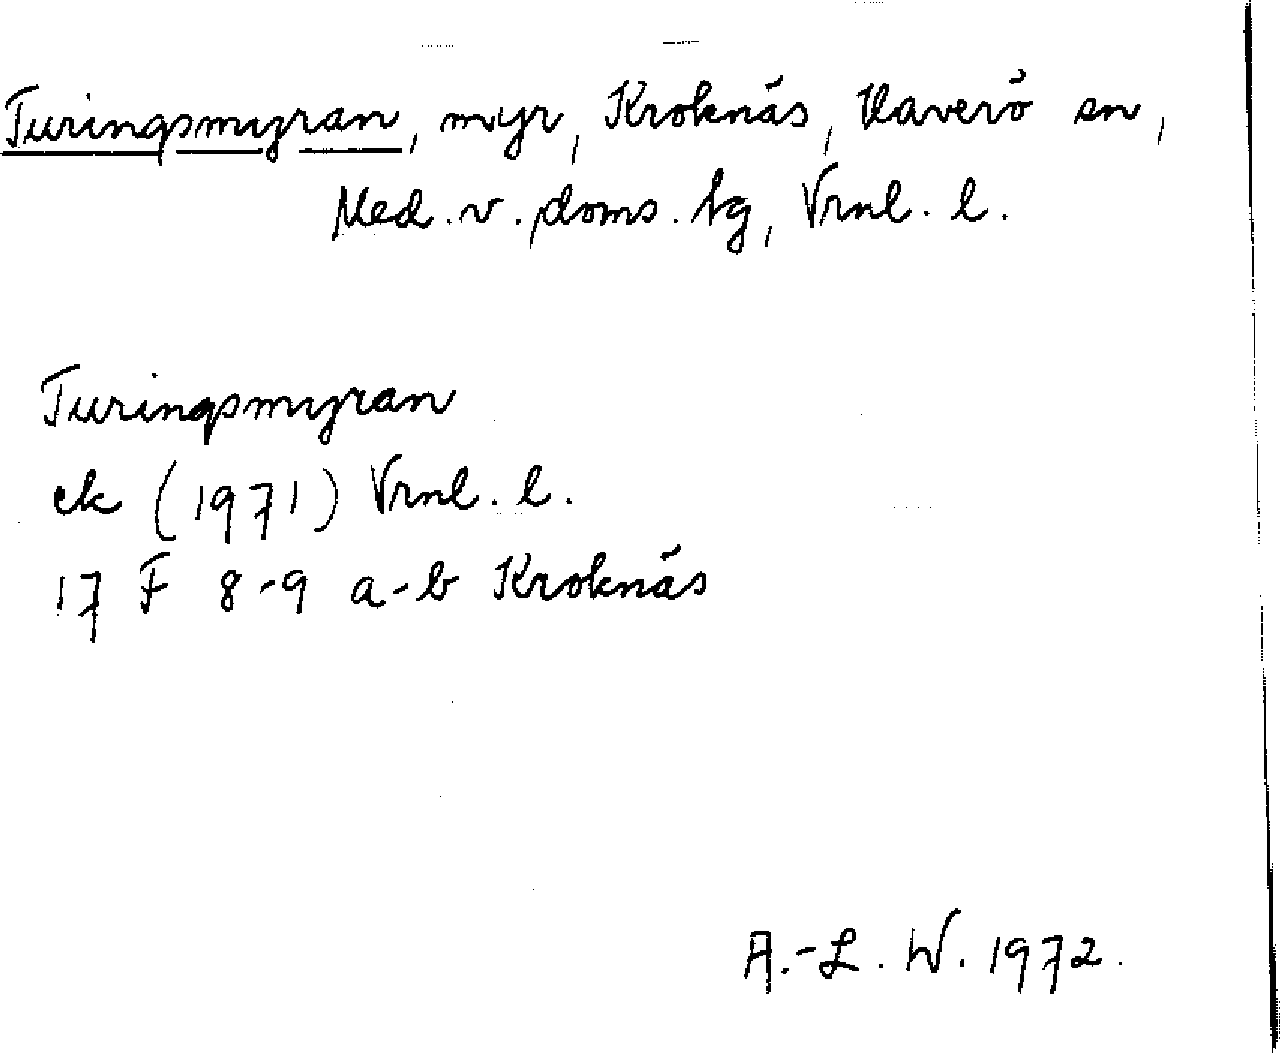 Turingsmyran, myr, Kroknäs, Haverö sn,
Med. v. doms. tg, Vrnl. l.
Turingsmyran
ek (1971) Vrnl. l.
17 F 8-9 a-b Kroknäs
A.-L. W. 1972.